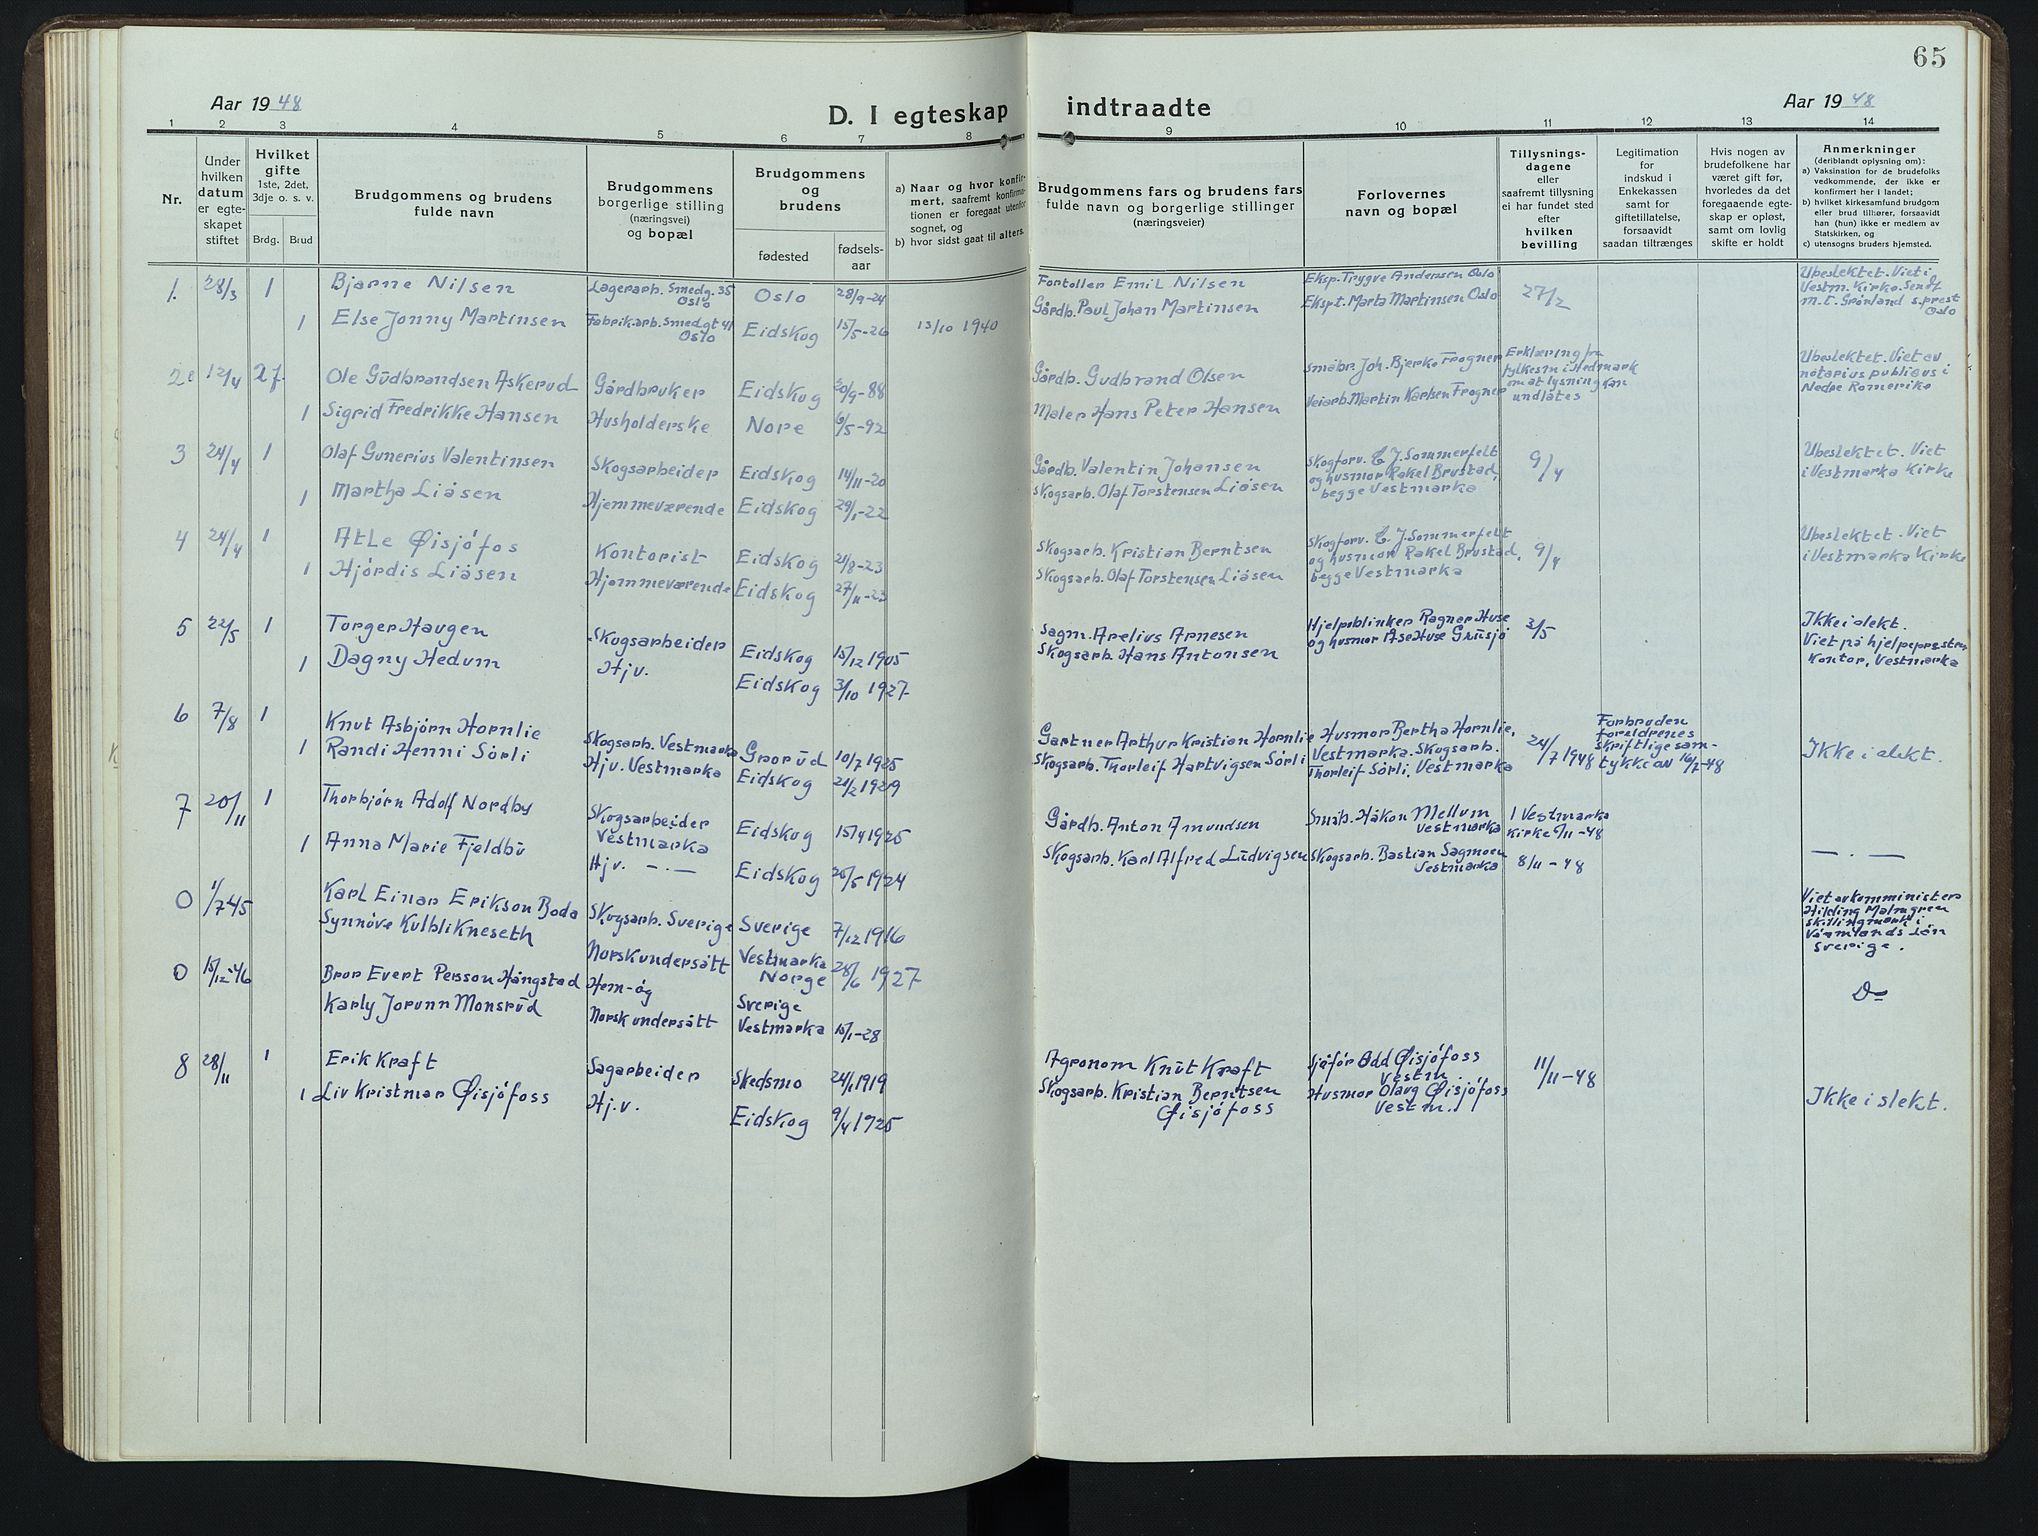 65
Aar 1948
D. I egteskap indtraadte
Aar 1948
1 2 3 4 5 6 7 8 9 10 11 12 13 14
Nr.
Under hvilken datum er egte- skapet stiftet
Hvilket gifte 1ste, 2det, 3dje o. s. v.
Brdg. Brud
Brudgommens og brudens fulde navn
Brudgommens borgerlige stilling (næringsvei) og bopæl
Brudgommens og brudens
fødested
fødsels- aar
a) Naar og hvor konfir- mert, saafremt konfirma- tionen er foregaat utenfor sognet, og
b) hvor sidst gaat til alters.
Brudgommens fars og brudens fars fulde navn og borgerlige stillinger (næringsveier)
Forlovernes navn og bopæl
Tillysnings- dagene eller saafremt tillysning ei har fundet sted efter hvilken bevilling
Legitimation for indskud i Enkekassen samt for giftetillatelse, forsaavidt saadan tiltrænges
Hvis nogen av brudefolkene har været gift før, hvorledes da det foregaaende egte- skap er opløst, samt om lovlig skifte er holdt
Anmerkninger (deriblandt oplysning om):
a) Vaksination for de brudefolks vedkommende, der ikke er konfirmert her i landet;
b) hvilket kirkesamfund brudgom eller brud tilhører, forsaavidt han (hun) ikke er medlem av Statskirken, og
c) utensogns bruders hjemsted.
1. 28/3 1 Bjarne Nilsen Lagerarb. Smedg. 35 Oslo Oslo 28/9-24 Fortoller Emil Nilsen Eksp. Trygve Andersen Oslo 27/2 Ubeslektet. Viet i Vestm. Kirke. Sendt m. t. Grønland s.prest Oslo
1 Else Jonny Martinsen Fabrikarb. Smedgt 41 Oslo Eidskog 15/5-26 13/10 1940 Gårdb. Paul Johan Martinsen Ekspt. Marta Martinsen Oslo
2 12/4 27. Ole Gudbrandsen Askerud Gårdbruker Eidskog 30/9-88 Gårdb. Gudbrand Olsen Småbr. Joh. Bjerke Frogner Erklæring fra fylkesm i Hedmark om at lysning kan undlates Ubeslektet. Viet av notarius publicus i Nedre Romerike
1 Sigrid Fredrikke Hansen Husholderske Nore 6/5-92 Maler Hans Peter Hansen Veiarb. Martin Karlsen Frogner
3 24/4 1 Olaf Gunerius Valentinsen Skogsarbeider Eidskog 14/11-20 Gårdb. Valentin Johansen Skogforv. C. J. Sommerfelt og husmor Rakel Brustad, begge Vestmarka 9/4 Ubeslektet. Viet i Vestmarka Kirke
1 Martha Liåsen Hjemmeværende Eidskog 29/1-22 Skogsarb. Olaf Torstensen Liåsen
4 24/4 1 Atle Øisjøfos Kontorist Eidskog 21/8-23 Skogsarb. Kristian Berntsen Skogforv. C. J. Sommerfelt og husmor Rakel Brustad, begge Vestmarka 9/4 Ubeslektet. Viet i Vestmarka Kirke
1 Hjördis Liåsen Hjemmeværende Eidskog 27/11-23 Skogsarb. Olaf Torstensen Liåsen
5 22/5 1 Torger Haugen Skogsarbeider Eidskog 15/12 1905 Sagm. Arelius Arnesen Hjelpeblinker Ragnar Huse og husmor Åse Huse Grusjø 3/5 Ikke i slekt. Viet på hjelpeprestens kontor, Vestmarka
1 Dagny Hedum Hjv. Eidskog 3/10 1927 Skogsarb. Hans Antonsen
6 7/8 1 Knut Asbjørn Hornlie Skogsarb. Vestmarka Grorud 10/7 1925 Gartner Arthur Kristian Hornlie Husmor Bertha Hornlie, Vestmarka. Skogsarb. Thorleif Sörli, Vestmarka 24/7 1948 For bruden foreldrenes skriftlige sam- tykke av 16/7-48 Ikke i slekt.
1 Randi Henni Sörli Hjv. Vestmarka Eidskog 21/2 1929 Skogsarb. Thorleif Hartvigsen Sörli
7 20/11 1 Thorbjørn Adolf Nordby Skogsarbeider Vestmarka Eidskog 15/4 1925 Gårdb. Anton Amundsen Småb. Håkon Mellum Vestmarka I Vestmarka kirke 6/11-48 — . —
1 Anna Marie Fjeldbu Hjv. — . — Eidskog 25/5 1924 Skogsarb. Karl Alfred Ludvigsen Skogsarb. Bastian Sagmoen Vestmarka 8/11-48
0 1/7 45 Karl Einar Erikson Boda Skogsarb. Sverige Sverige 7/12 1916 Viet av komminister Hilding Malmgren Skillingmark i Värmlands län Sverige.
Synnöve Kulblikneseth Norsk undersått Vestmarka Norge 28/6 1927
0 15/12-46 Bror Evert Persson Hångstad Hem- og Sverige D=
Karly Jorunn Monsrud Norsk undersått Vestmarka 15/1-28
8 28/11 1 Erik Kraft Sagarbeider Skedsmo 24/1 1919 Agronom Knut Kraft Sjåför Odd Øisjöfoss Vestm. 11/11-48 Ikke i slekt.
1 Liv Kristmar Øisjöfoss Hj.v. Eidskog 9/4 1925 Skogsarb. Kristian Berntsen Øisjöfoss Husmor Olaug Øisjöfoss Vestm.